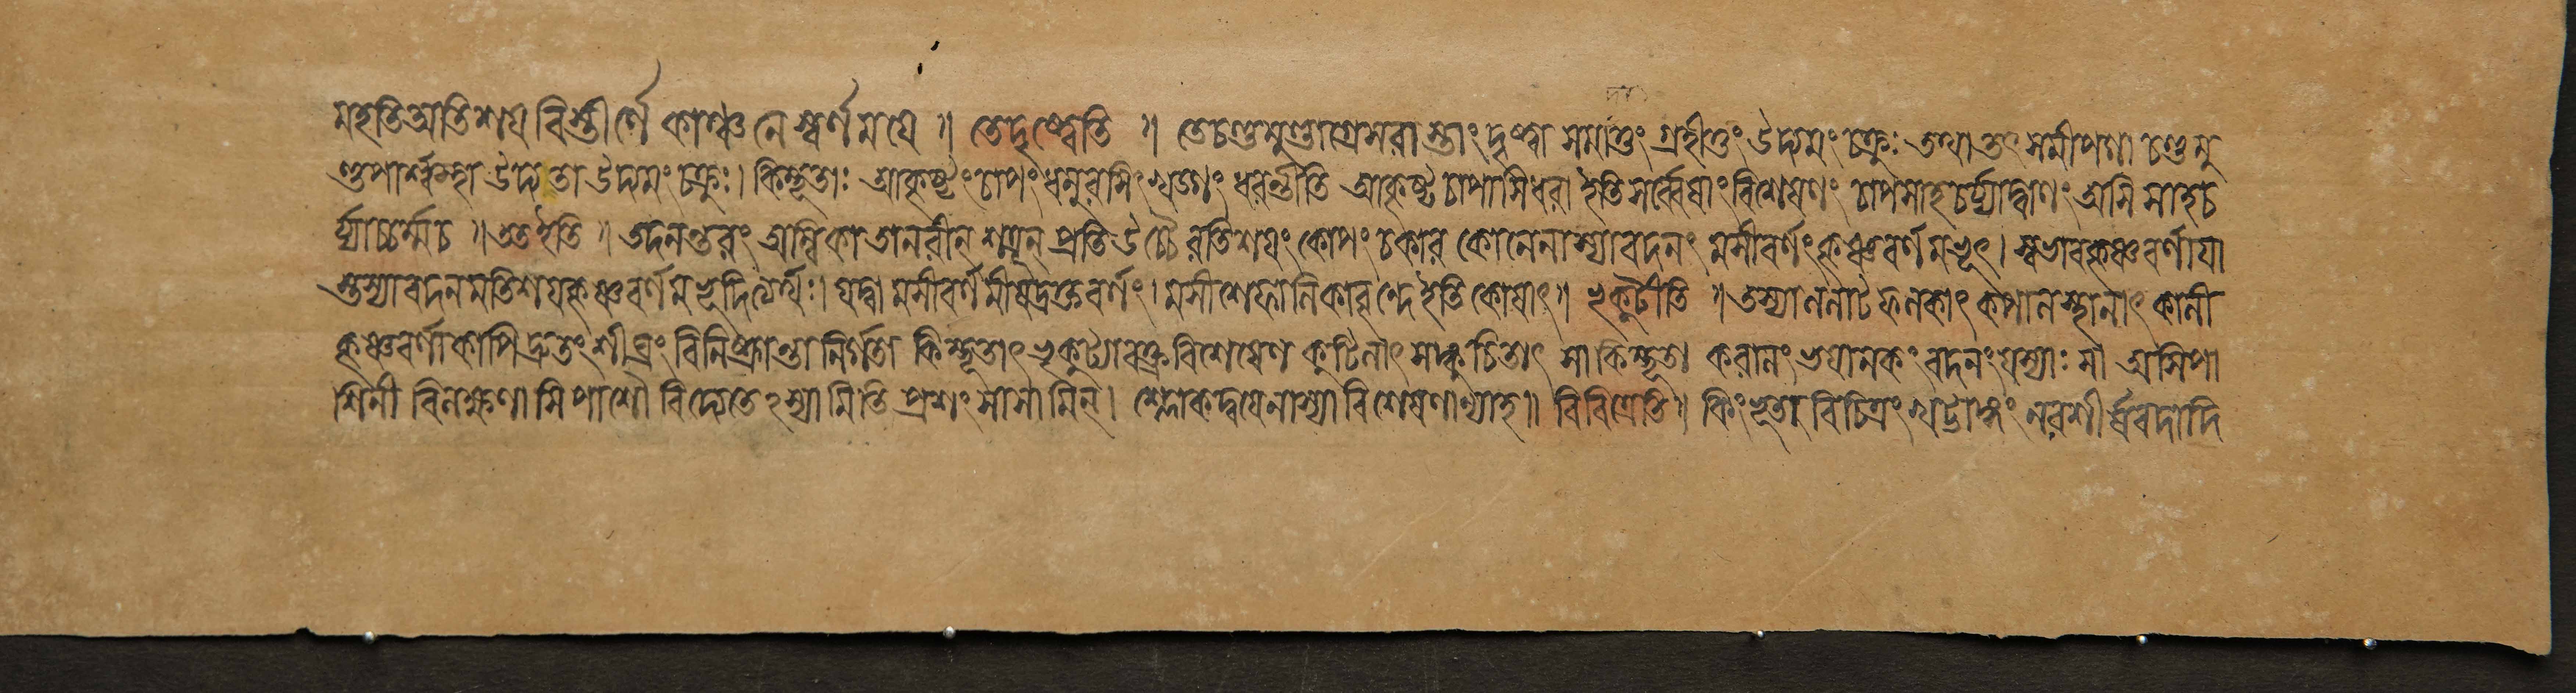 মহতি অতিশয় বিস্তীর্ণে কাঞ্চনে স্বর্ণময়ে ॥ তে দৃষ্ট্বেতি ॥ তে চণ্ডমুণ্ডাগ্রেসরাস্তাং দৃষ্ট্বা সমাদাতুং গ্রহীতুং উদ্যমং চক্রুঃ তথা তৎসমীপগা চণ্ডমু
ণ্ডপার্শ্বস্থা উদ্যতা উদ্যমং চক্রুঃ। কিম্ভূতাঃ আকৃষ্টং চাপং ধনুরসিং খড়্গং ধরন্তীতি আকৃষ্টচাপাসিধরা ইতি সর্ব্বেষাং বিশেষণং চাপসাহচর্য্যাদ্বাণং অসিসাহচ
র্য্যাচ্চর্ম্মচ ॥ তত ইতি ॥ তদনন্তরং অম্বিকা তানরীন শত্রূন্ প্রতি উচ্চৈরতিশয়ং কোপং চকার কোপেনাস্যাবদনং মসীবর্ণং কৃষ্ণবর্ণমভূৎ। স্বভাবকৃষ্ণবর্ণাযা
স্তস্যাবদনমতিশয়কৃষ্ণবর্ণমভূদিত্যর্থঃ। যদ্বা মসীবর্ণমীষদ্রক্তবর্ণং। মসীশেফালিকাবৃন্দে ইতি কোষাৎ॥ ভ্রূকুটীতি ॥ তস্যাললাটফলকাৎ কপালস্থানাৎ কালী
কৃষ্ণবর্ণাকাপি দ্রুতং শীঘ্রং বিনিষ্ক্রান্তা নির্গতা কিম্ভূতাৎ ভ্রূকুট্যাবক্ত্রবিশেষেণ কুটিলাৎ সঙ্কুচিতাৎ সা কিম্ভূতা করালং ভয়ানকং বদনং যস্যাঃ সা অসিপা
শিনী বিলক্ষণাসিপাশৌ বিদ্যেতেঽস্যামিতি প্রশংসায়ামিন্। শ্লোকদ্বয়েনাস্যাবিশেষণান্যাহ॥ বিচিত্রেতি॥ কিংভূতা বিচিত্রং খট্বাঙ্গং নরশীর্ষবদাদি